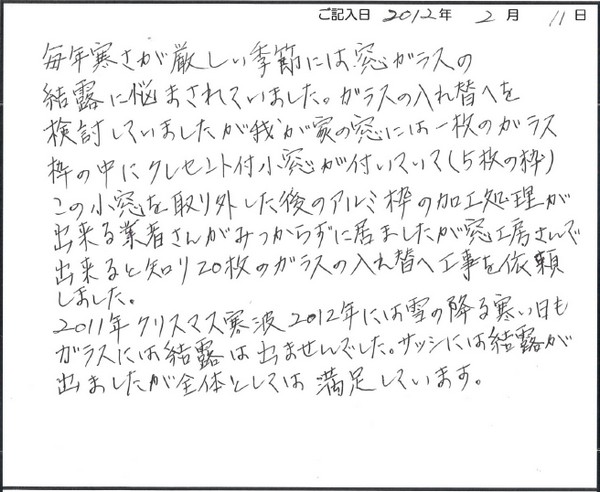 ご記入日 2012年 2月 11日
毎年寒さが厳しい季節には窓ガラスの
結露に悩まされていました。ガラスの入れ替へを
検討していましたが我が家の窓には一枚のガラス
枠の中にクレセント付小窓が付いていて(5枚の枠)
この小窓を取り外した後のアルミ枠の加工処理が
出来る業者さんがみつからずに居ましたが窓工房さんで
出来ると知り20枚のガラスの入れ替へ工事を依頼
しました。
2011年クリスマス寒波2012年には雪の降る寒い日も
ガラスには結露は出ませんでした。サッシには結露が
出ましたが全体としては満足しています。